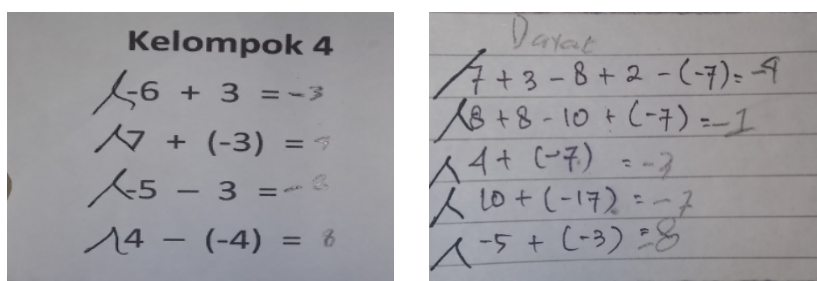 Kelompok 4
-6 + 3 = -3
7 + (-3) =
-5 - 3 = -
4 - (-4) = 8
Darat
7 + 3 - 8 + 2 - (-7) = -9
8 + 8 - 10 + (-7) = -1
4 + (-7) = -3
10 + (-17) = -7
-5 + (-3) = -8